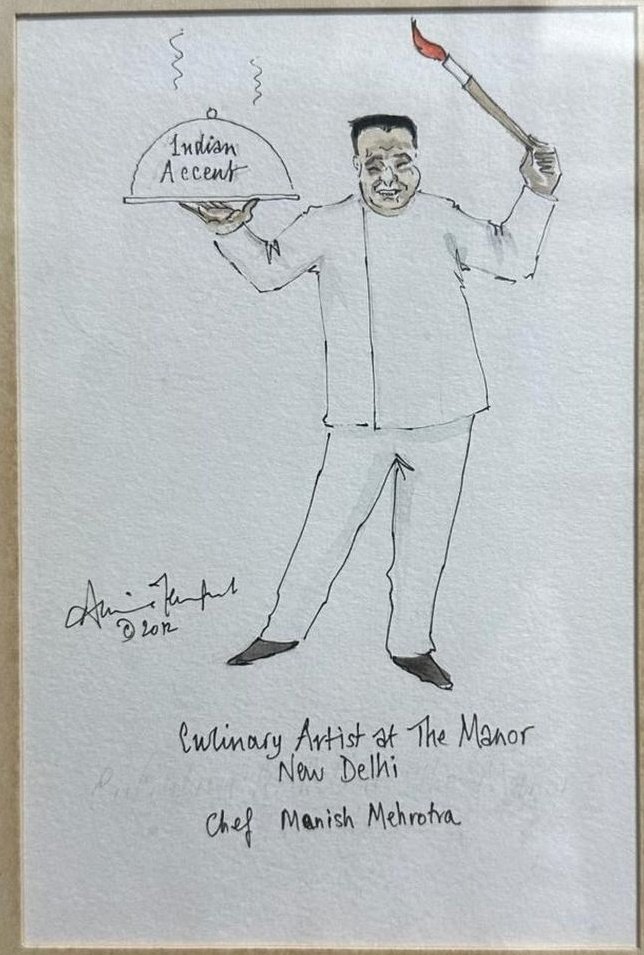 Indian
Accent
© 2012
Culinary Artist at The Manor
New Delhi
Chef Manish Mehrotra